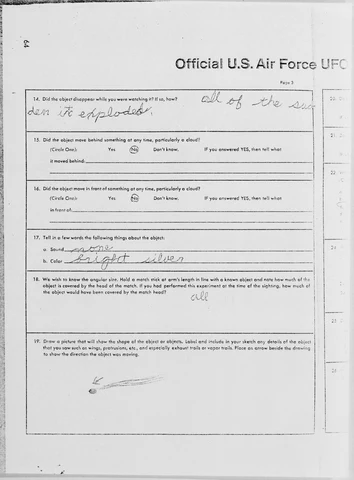 64
Official U.S. Air Force UFO
Page 3
14. Did the object disappear while you were watching it? If so, how? all of the sud
den it exploded.
15. Did the object move behind something at any time, particularly a cloud?
(Circle One): Yes No Don't know. If you answered YES, then tell what
it moved behind:
16. Did the object move in front of something at any time, particularly a cloud?
(Circle One): Yes No Don't know. If you answered YES, then tell what
in front of:
17. Tell in a few words the following things about the object:
a. Sound none
b. Color bright silver
18. We wish to know the angular size. Hold a match stick at arm's length in line with a known object and note how much of the
object is covered by the head of the match. If you had performed this experiment at the time of the sighting, how much of
the object would have been covered by the match head?
all
19. Draw a picture that will show the shape of the object or objects. Label and include in your sketch any details of the object
that you saw such as wings, protrusions, etc., and especially exhaust trails or vapor trails. Place an arrow beside the drawing
to show the direction the object was moving.